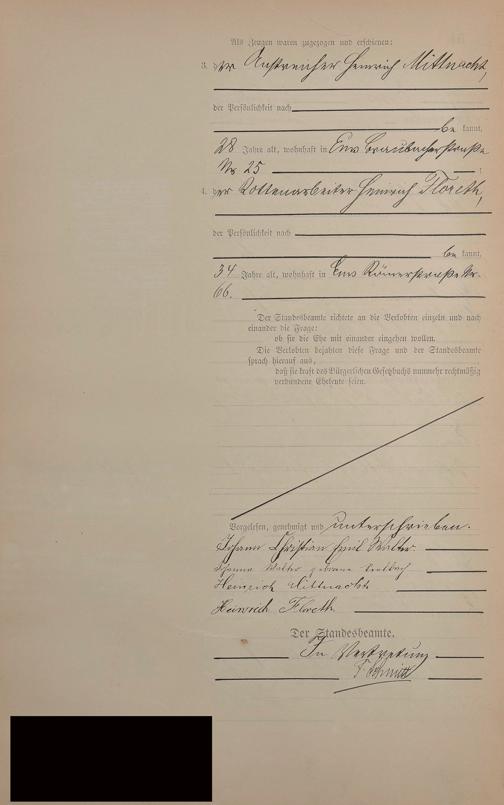 Als Zeugen waren zugezogen und erschienen:
3. der Anstreicher Heinrich Mittnacht,
der Persönlichkeit nach
be kannt,
28 Jahre alt, wohnhaft in Ems Braubacherstraße
Nr 25 ;
4. der Rottenarbeiter Heinrich Floreth,
der Persönlichkeit nach
be kannt,
34 Jahre alt, wohnhaft in Ems Römerstraße Nr.
66.
Der Standesbeamte richtete an die Verlobten einzeln und nach
einander die Frage:
ob sie die Ehe mit einander eingehen wollen.
Die Verlobten bejahten diese Frage und der Standesbeamte
sprach hierauf aus,
daß sie kraft des Bürgerlichen Gesetzbuchs nunmehr rechtmäßig
verbundene Eheleute seien.
Vorgelesen, genehmigt und unterschrieben.
Johann Christian Emil Walter.
Johanna Walter geborene
Heinrich Mittnacht
Heinrich Floreth
Der Standesbeamte.
In Vertretung
Schmitt